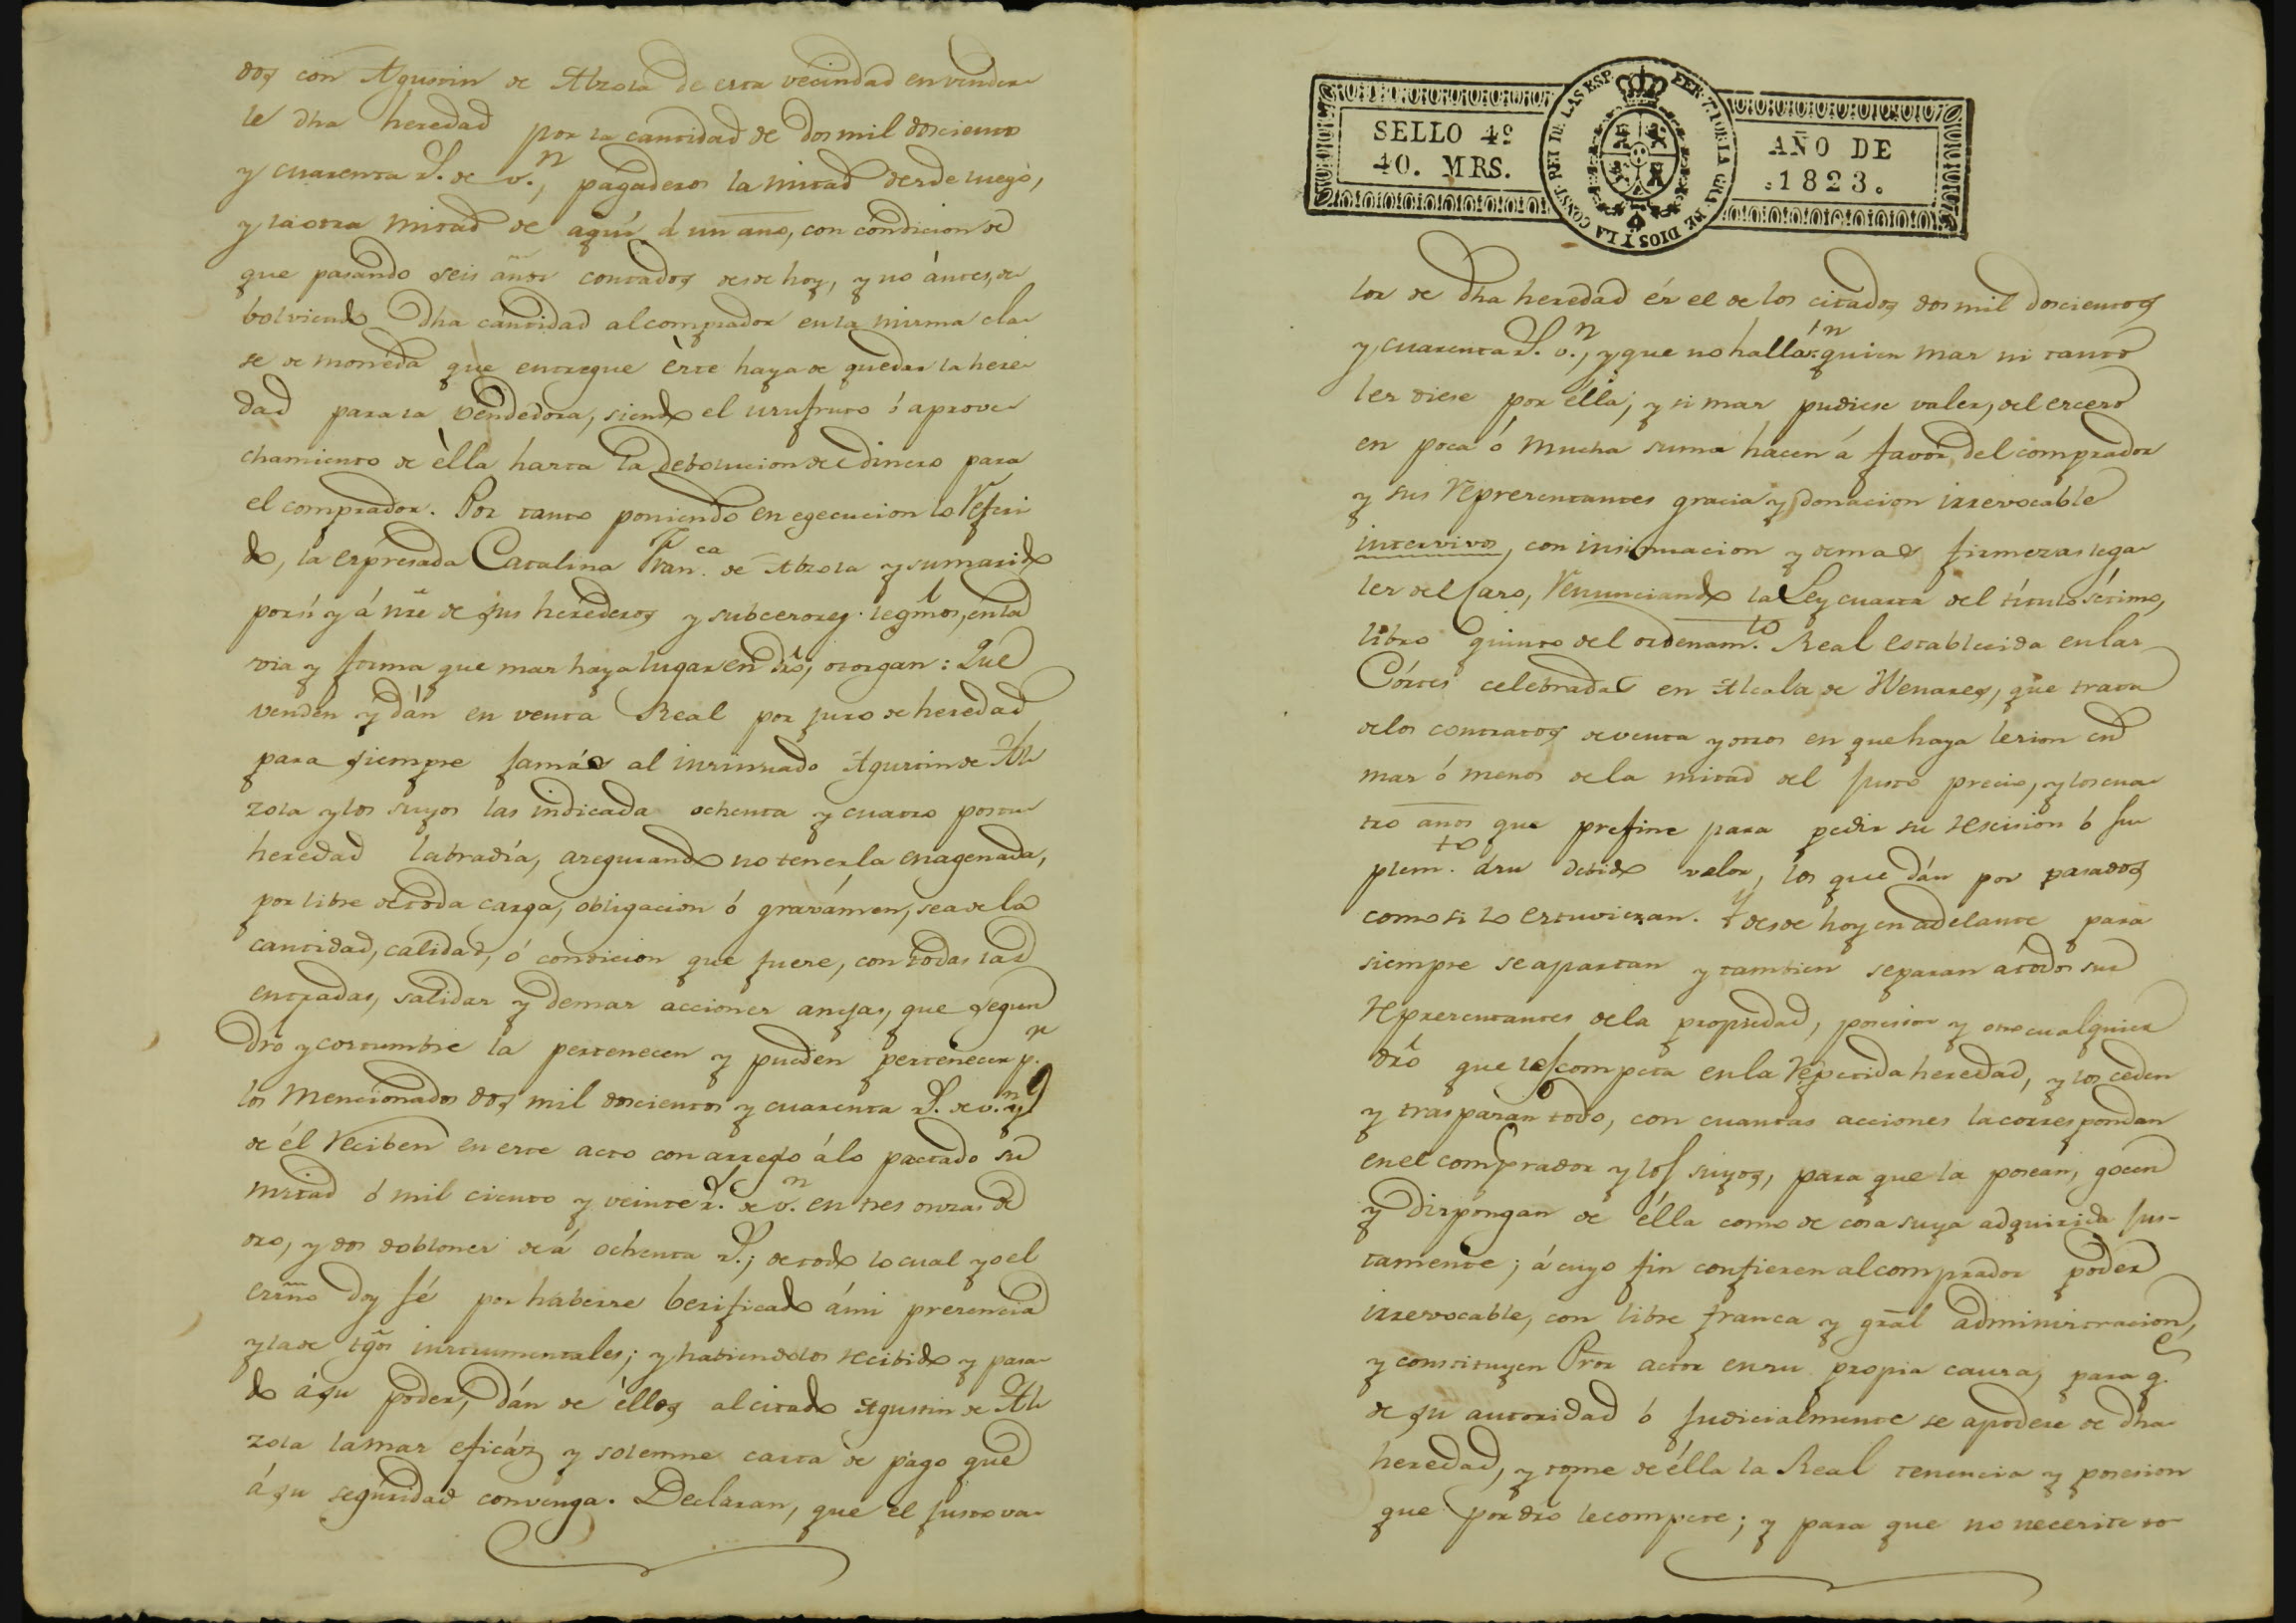 dos con Agustin de Alzola de esta vecindad en vender
le dha heredad por la cantidad de dos mil doscientos
y cuarenta r.s de v.n, pagaderos la mitad desde luego,
y la otra mitad de aquí á un año, con condicion de
que pasando seis años contados desde hoy, y no ántes, de
bolviendo dha cantidad al comprador en la misma cla
se de moneda que entregue èste haya de quedar la here
dad para la vendedora, siendo el usufruto ó aprove
chamiento de èlla hasta la debolucion del dinero para
el comprador. Por tanto poniendo en egecucion lo referi
do, la expresada Catalina Fran.ca de Alzola y su marido
por sí y á nre de sus herederos y subcesores legmos, en la
via y forma que mas haya lugar en dro, otorgan: Que
venden y dán en venta Real por juro de heredad
para siempre jamás al insinuado Agustin de Al
zola y los suyos las indicada ochenta y cuatro postu
heredad labradía, asegurando no tenerla enagenada,
por libre de toda carga, obligacion ó gravámen, sea de la
cantidad, calidad, ó condicion que fuere, con todas las
entradas, salidas y demas acciones anejas, que segun
dro y costumbre la pertenecen y pueden pertenecer p.r
los mencionados dos mil doscientos y cuarenta r.s de v.n y
de él reciben en este acto con arreglo á lo pactado su
mitad ó mil ciento y veinte r.s de v.n en tres onzas de
oro, y dos doblones de á ochenta r.s; de todo lo cual yo el
esno doy fé por haberse berificado á mi presencia
y la de tgos instrumentales; y habiendolos recibido y pasa
do á su poder, dán de èllos al citado Agustin de Al
zola la mas eficáz y solemne carta de pago que
á su seguridad convenga. Declaran, que el justo va
SELLO 4º
40. MRS.
FER. 7. POR LA GRA. DE DIOS Y LA CONST. REI DE LAS ESP.
AÑO DE
1823.
lor de dha heredad és el de los citados dos mil doscientos
y cuarenta r.s v.n, y que no hallarín quien mas ni tanto
les diese por élla; y si mas pudiese valer, del exceso
en poca ó mucha suma hacen á favor del comprador
y sus representantes gracia y donacion irrevocable
intervivos, con insinuacion y demas firmezas lega
les del caso, renunciando la Ley cuarta del título sétimo,
libro quinto del ordenam.to Real establecida en las
Córtes celebradas en Alcala de Henares, que trata
de los contratos de venta y otros en que haya lesion en
mas ó menos de la mitad del justo precio, y los cua
tro años que prefine para pedir su rescision ó su
plem.to á su debido valor, los que dán por pasados
como si lo estuvieran. Y desde hoy en adelante para
siempre se apartan y tambien separan á todos sus
representantes de la propiedad, posesion y otro cualquier
dro que les competa en la repetida heredad, y los ceden
y traspasan todo, con cuantas acciones la correspondan
en el comprador y los suyos, para que la posean, gocen
y dispongan de élla como de cosa suya adquirida jus-
tamente; á cuyo fin confieren al comprador poder
irrevocable, con libre franca y gral administracion,
y constituyen Pror actor en su propia causa, para q.e
de su autoridad ó judicialmente se apodere de dha
heredad, y tome de élla la Real tenencia y posesion
que por dro le compete; y para que no necesite to